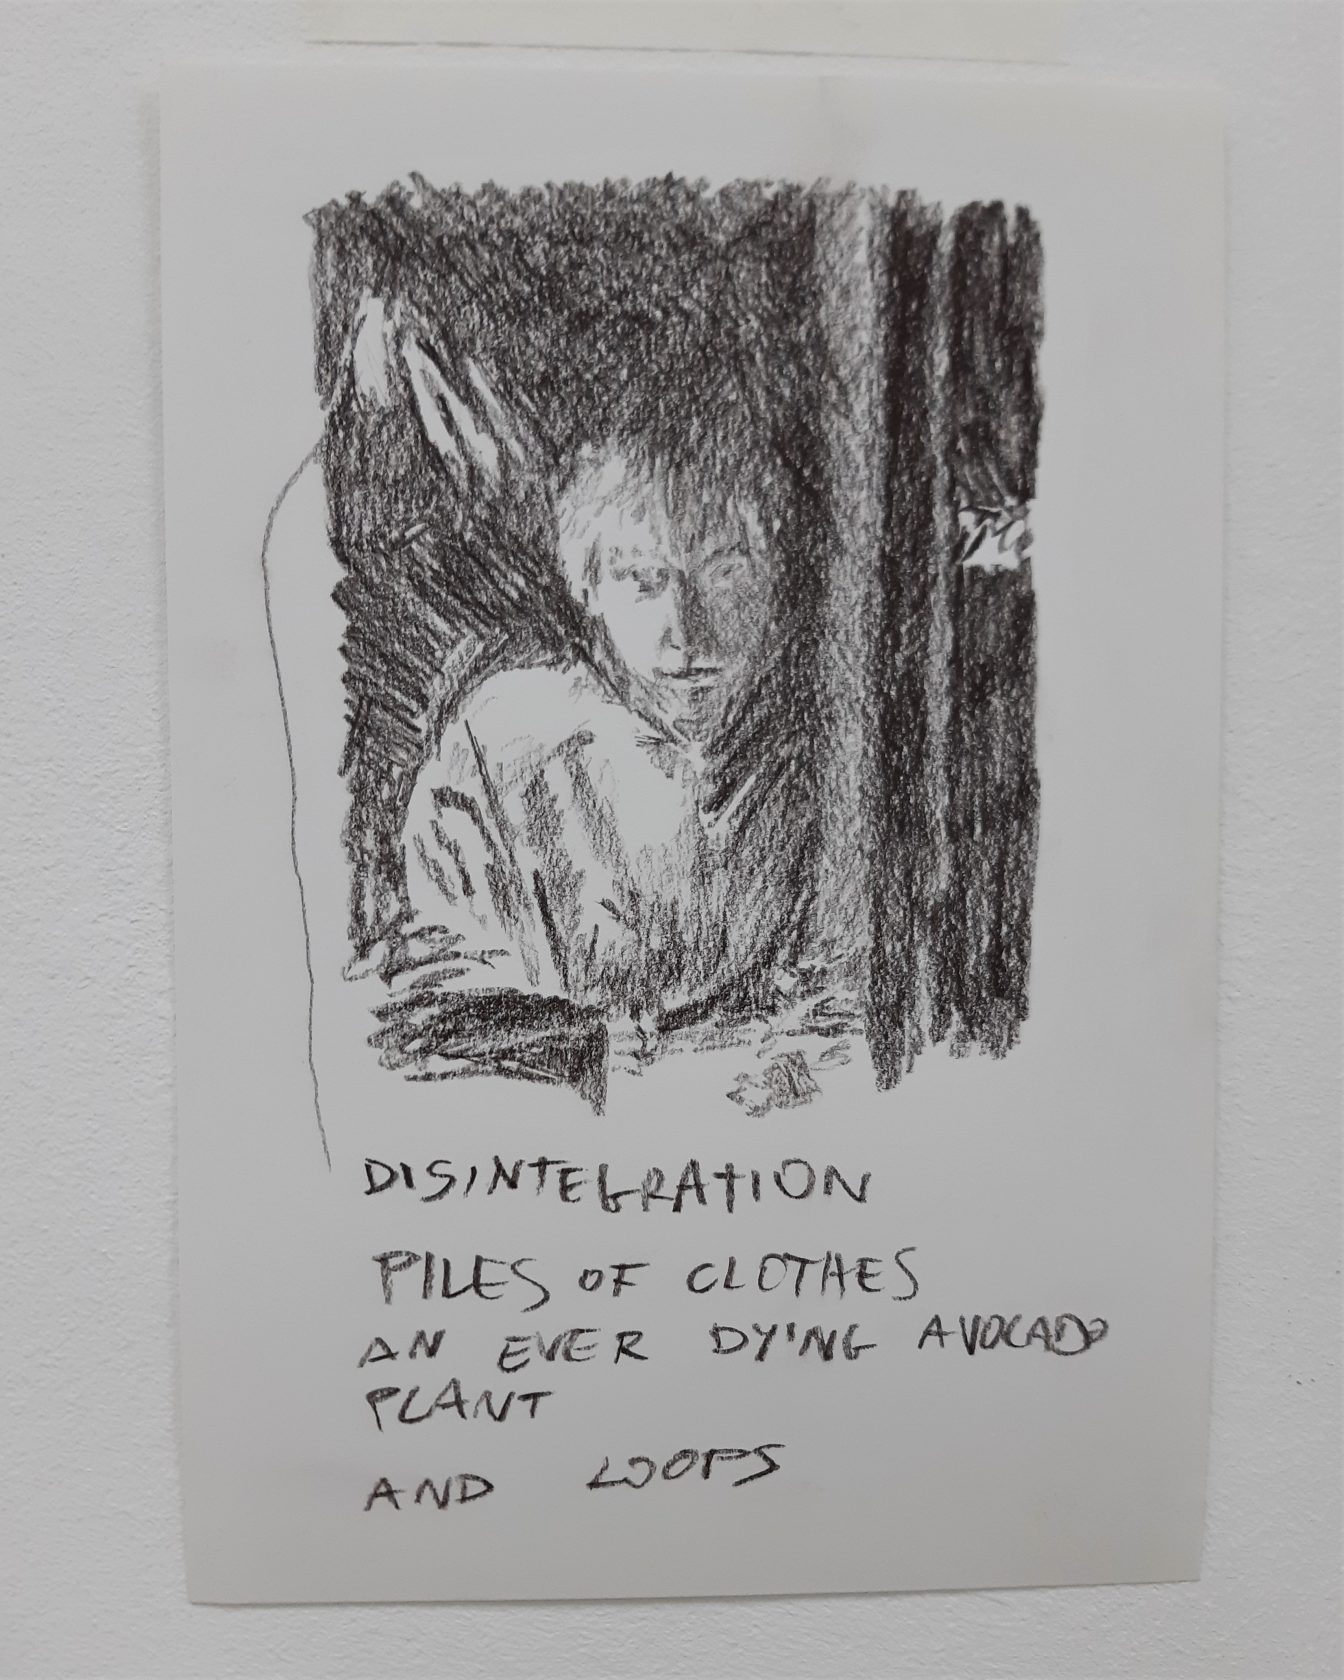 DISINTEGRATION
PILES OF CLOTHES
AN EVER DYING AVOCADO
PLANT
AND LOOPS